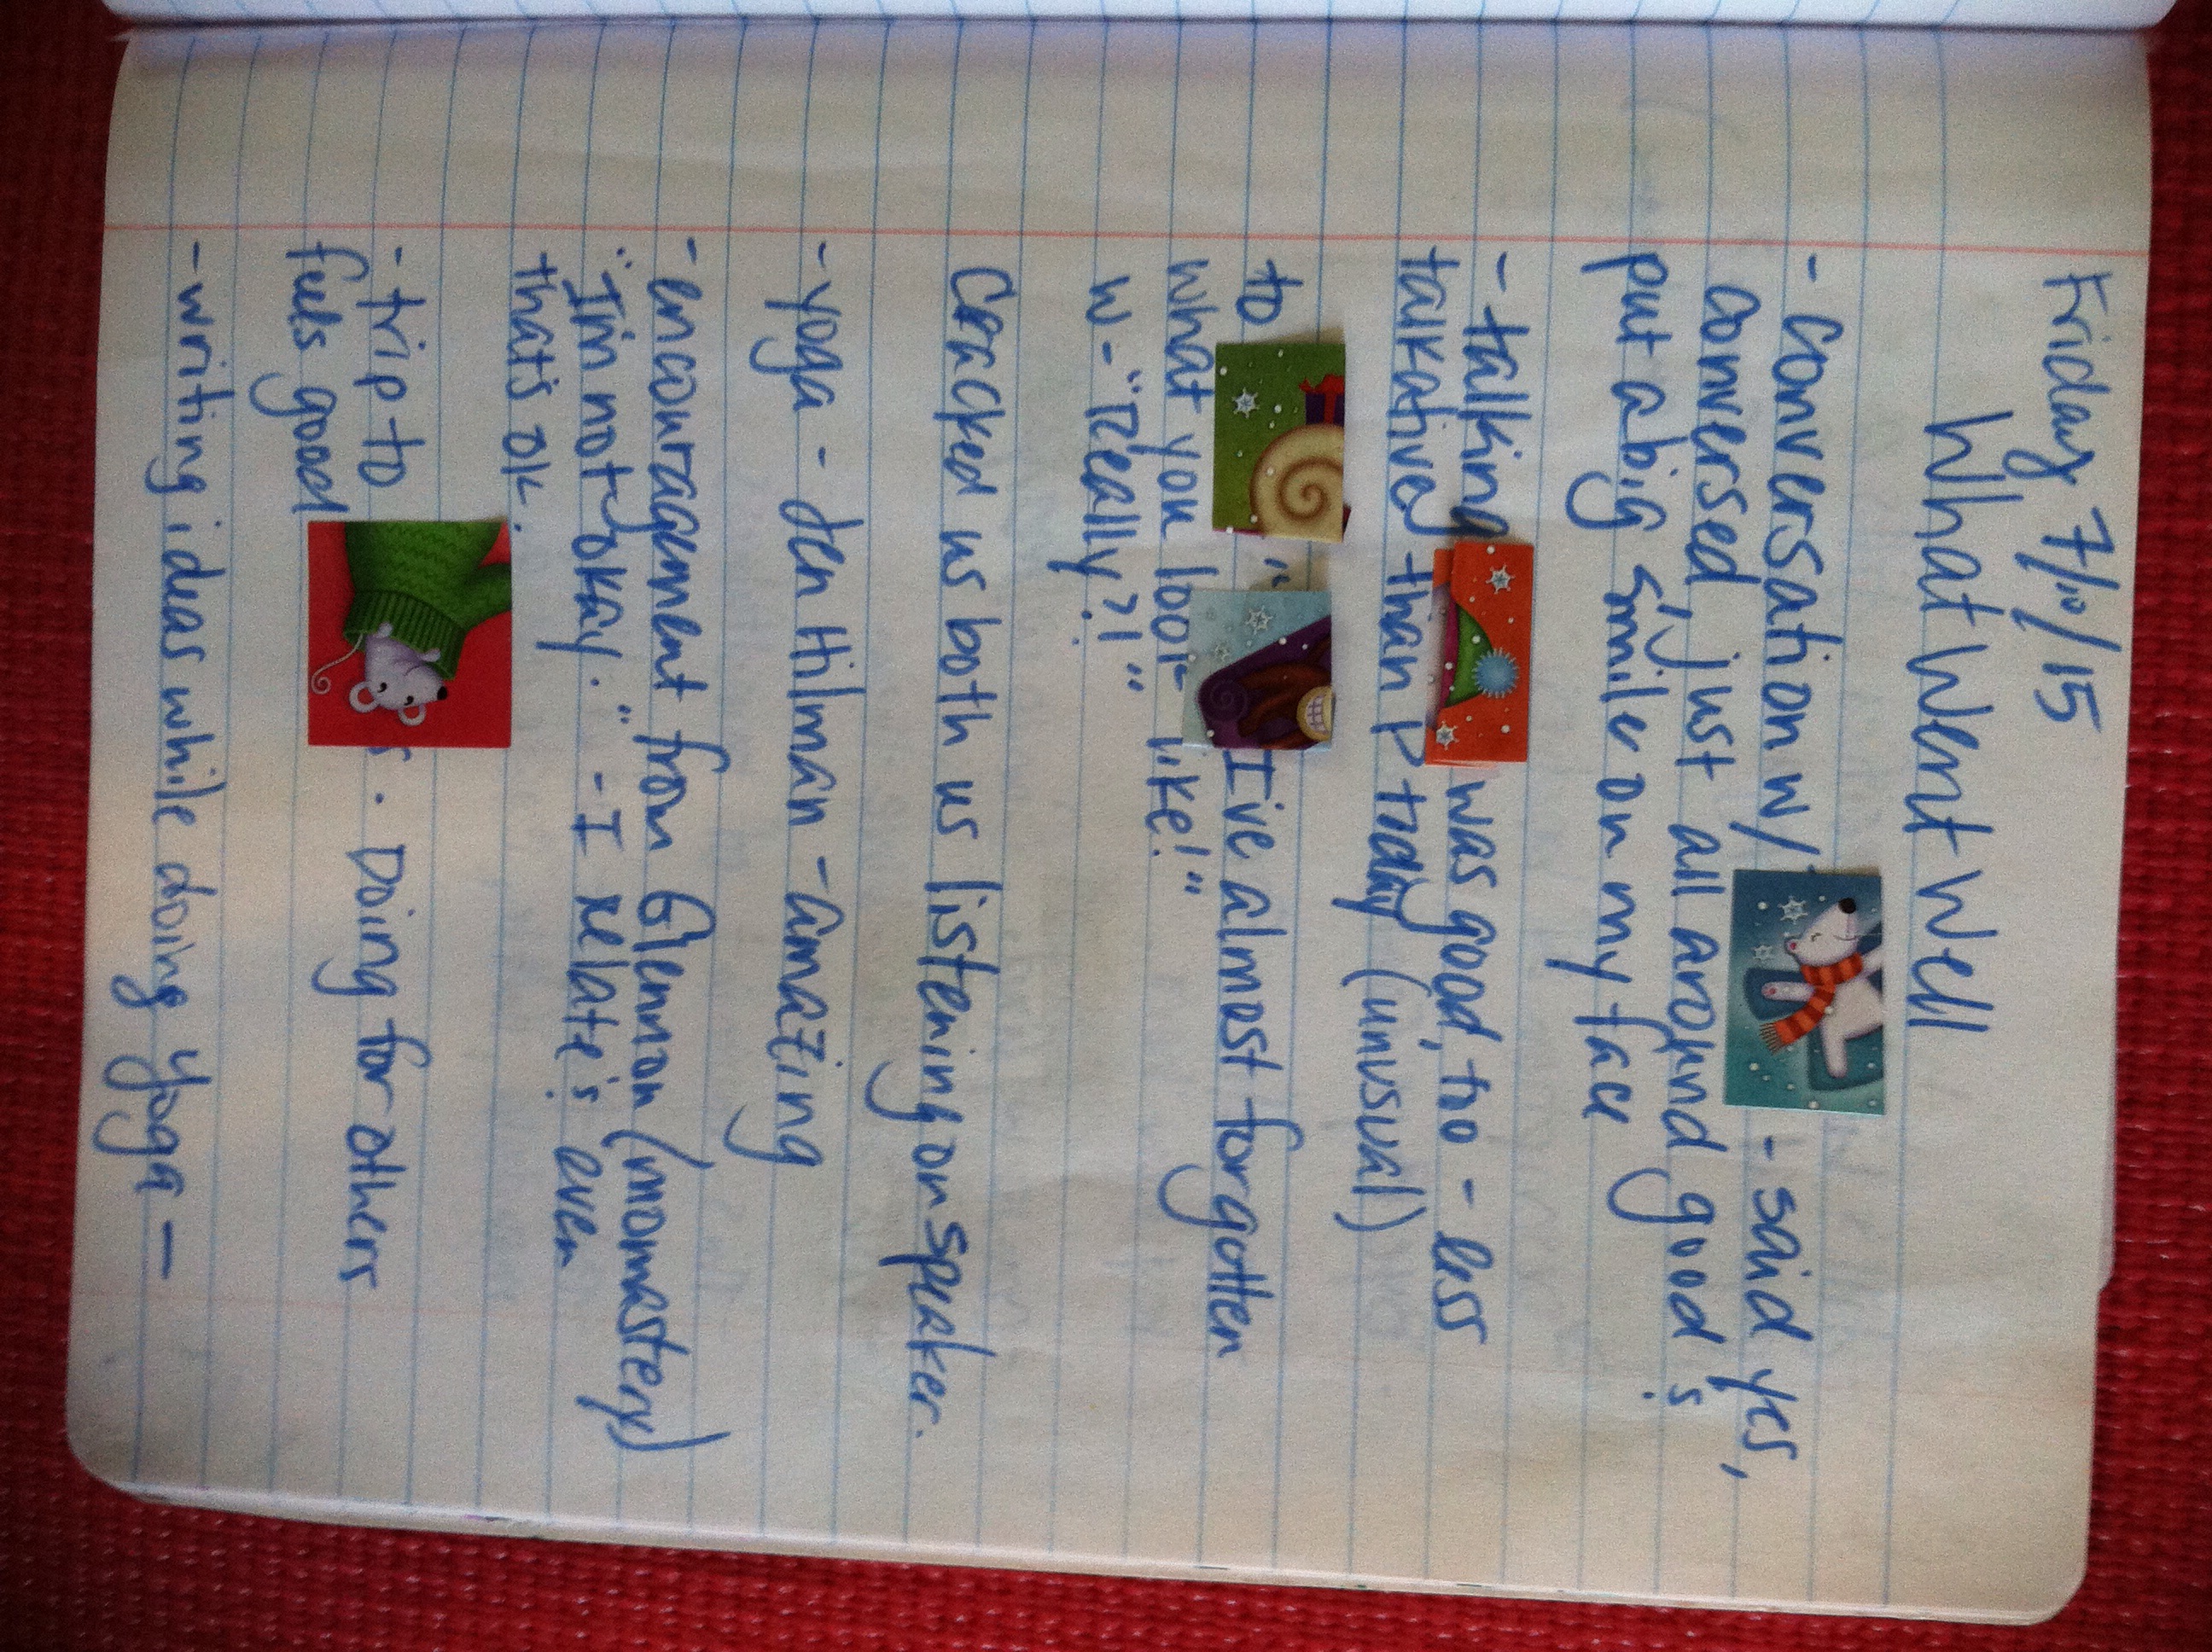 Friday 7/10/15
What Went Well
- Conversation w/ - said yes,
conversed, just all around good &
put a big smile on my face
- talking was good, too - less
talkative than I today (unusual)
to " I've almost forgotten
what you look like!"
w - "Really?!"
Cracked us both us listening on speaker.
- yoga - den Hilman - amazing
- encouragement from Glennon (momastery)
"I'm not okay." - I relate & even
that's ok.
- trip to . Doing for others
feels good
- writing ideas while doing yoga -